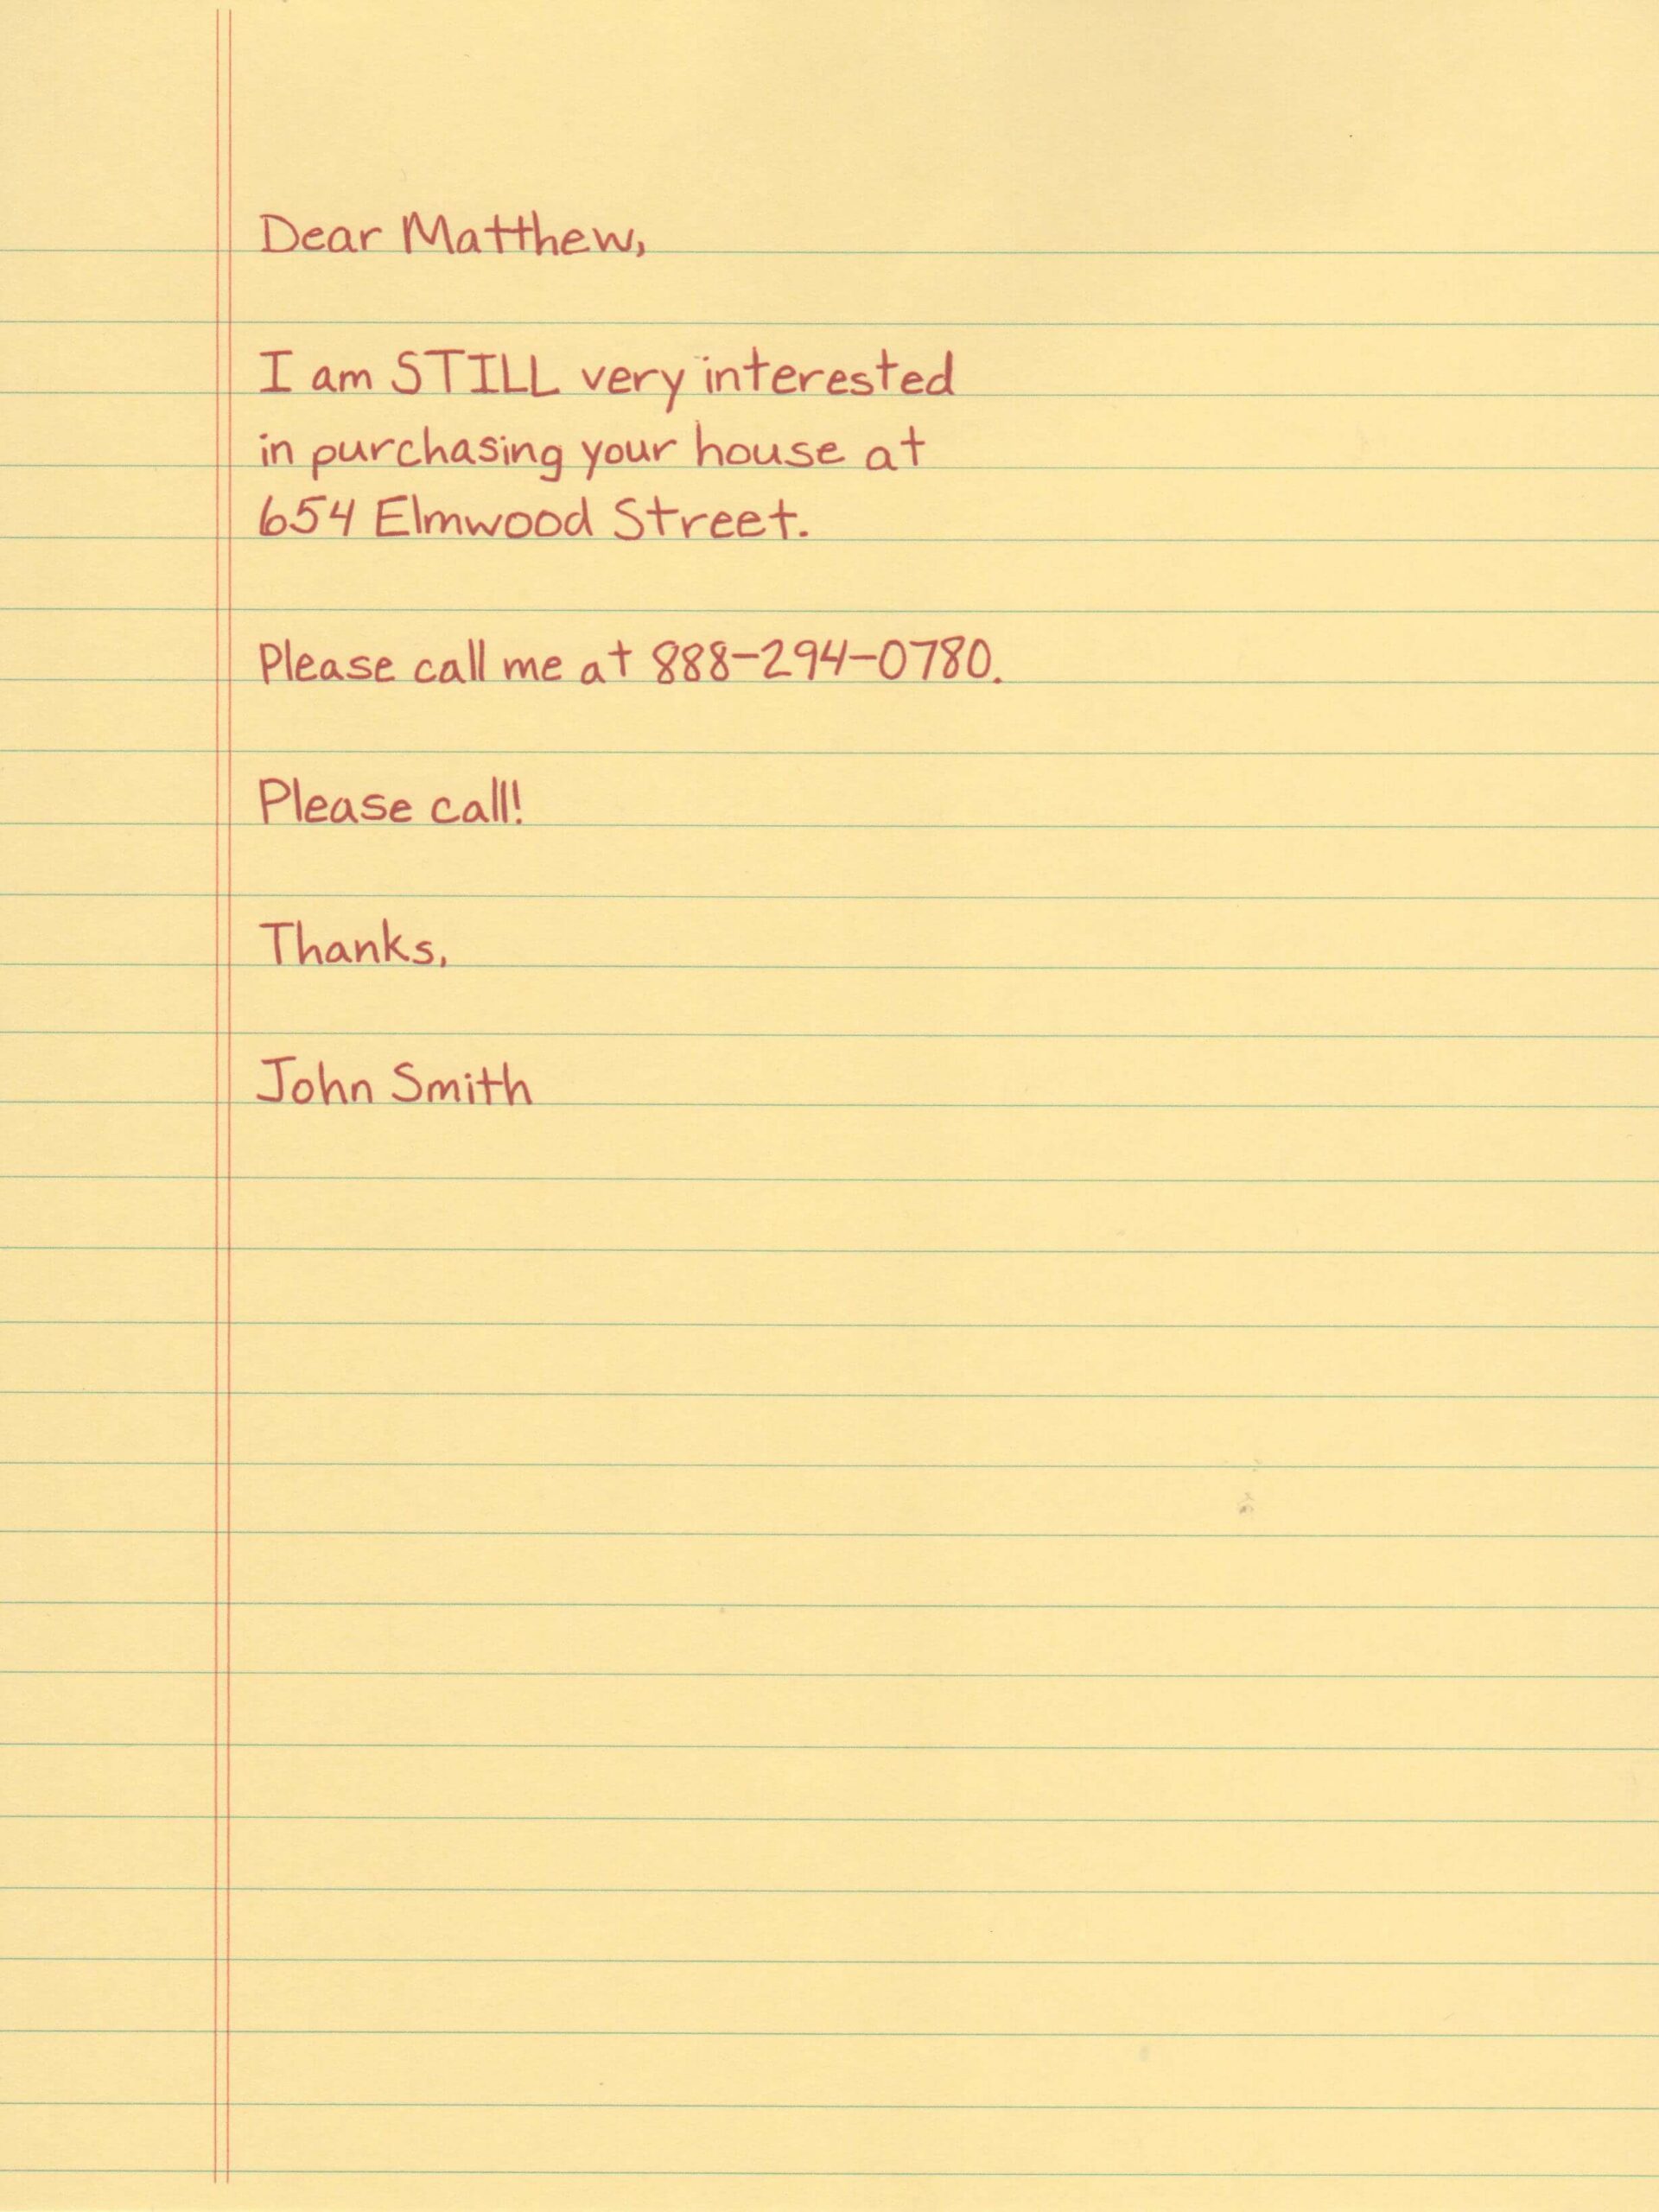 Dear Matthew,
I am STILL very interested
in purchasing your house at
654 Elmwood Street.
Please call me at 888-294-0780.
Please call!
Thanks,
John Smith